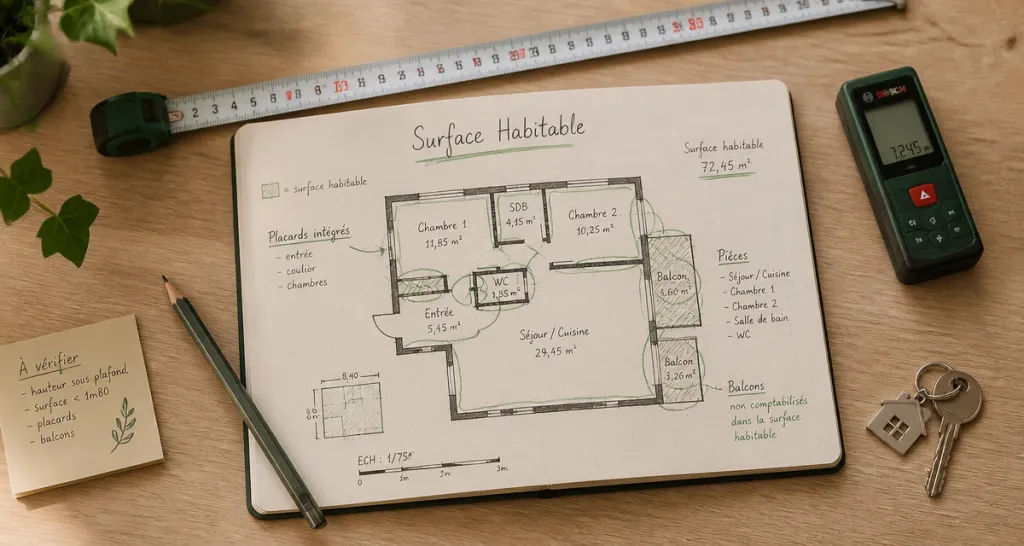 Surface Habitable
Surface habitable
72,45 m²
= surface habitable
Placards intégrés
- entrée
- coulior
- chambres
Chambre 1
11,85 m²
SDB
4,15 m²
Chambre 2
10,25 m²
WC
1,85 m²
Entrée
5,45 m²
Séjour / Cuisine
29,45 m²
Balcon
4,60 m²
Balcon
3,26 m²
Piéces
- Séjour / Cuisine
- Chambre 1
- Chambre 2
- Salle de bain
- WC
Balcons
non comptabilisés
dans la surface
habitable
8,40
ECH : 1/75°
0 1m 2m
À vérifier
- hauteur sous plafond
- surface < 1m80
- placards
- balcons
BOSCH
7.245 m